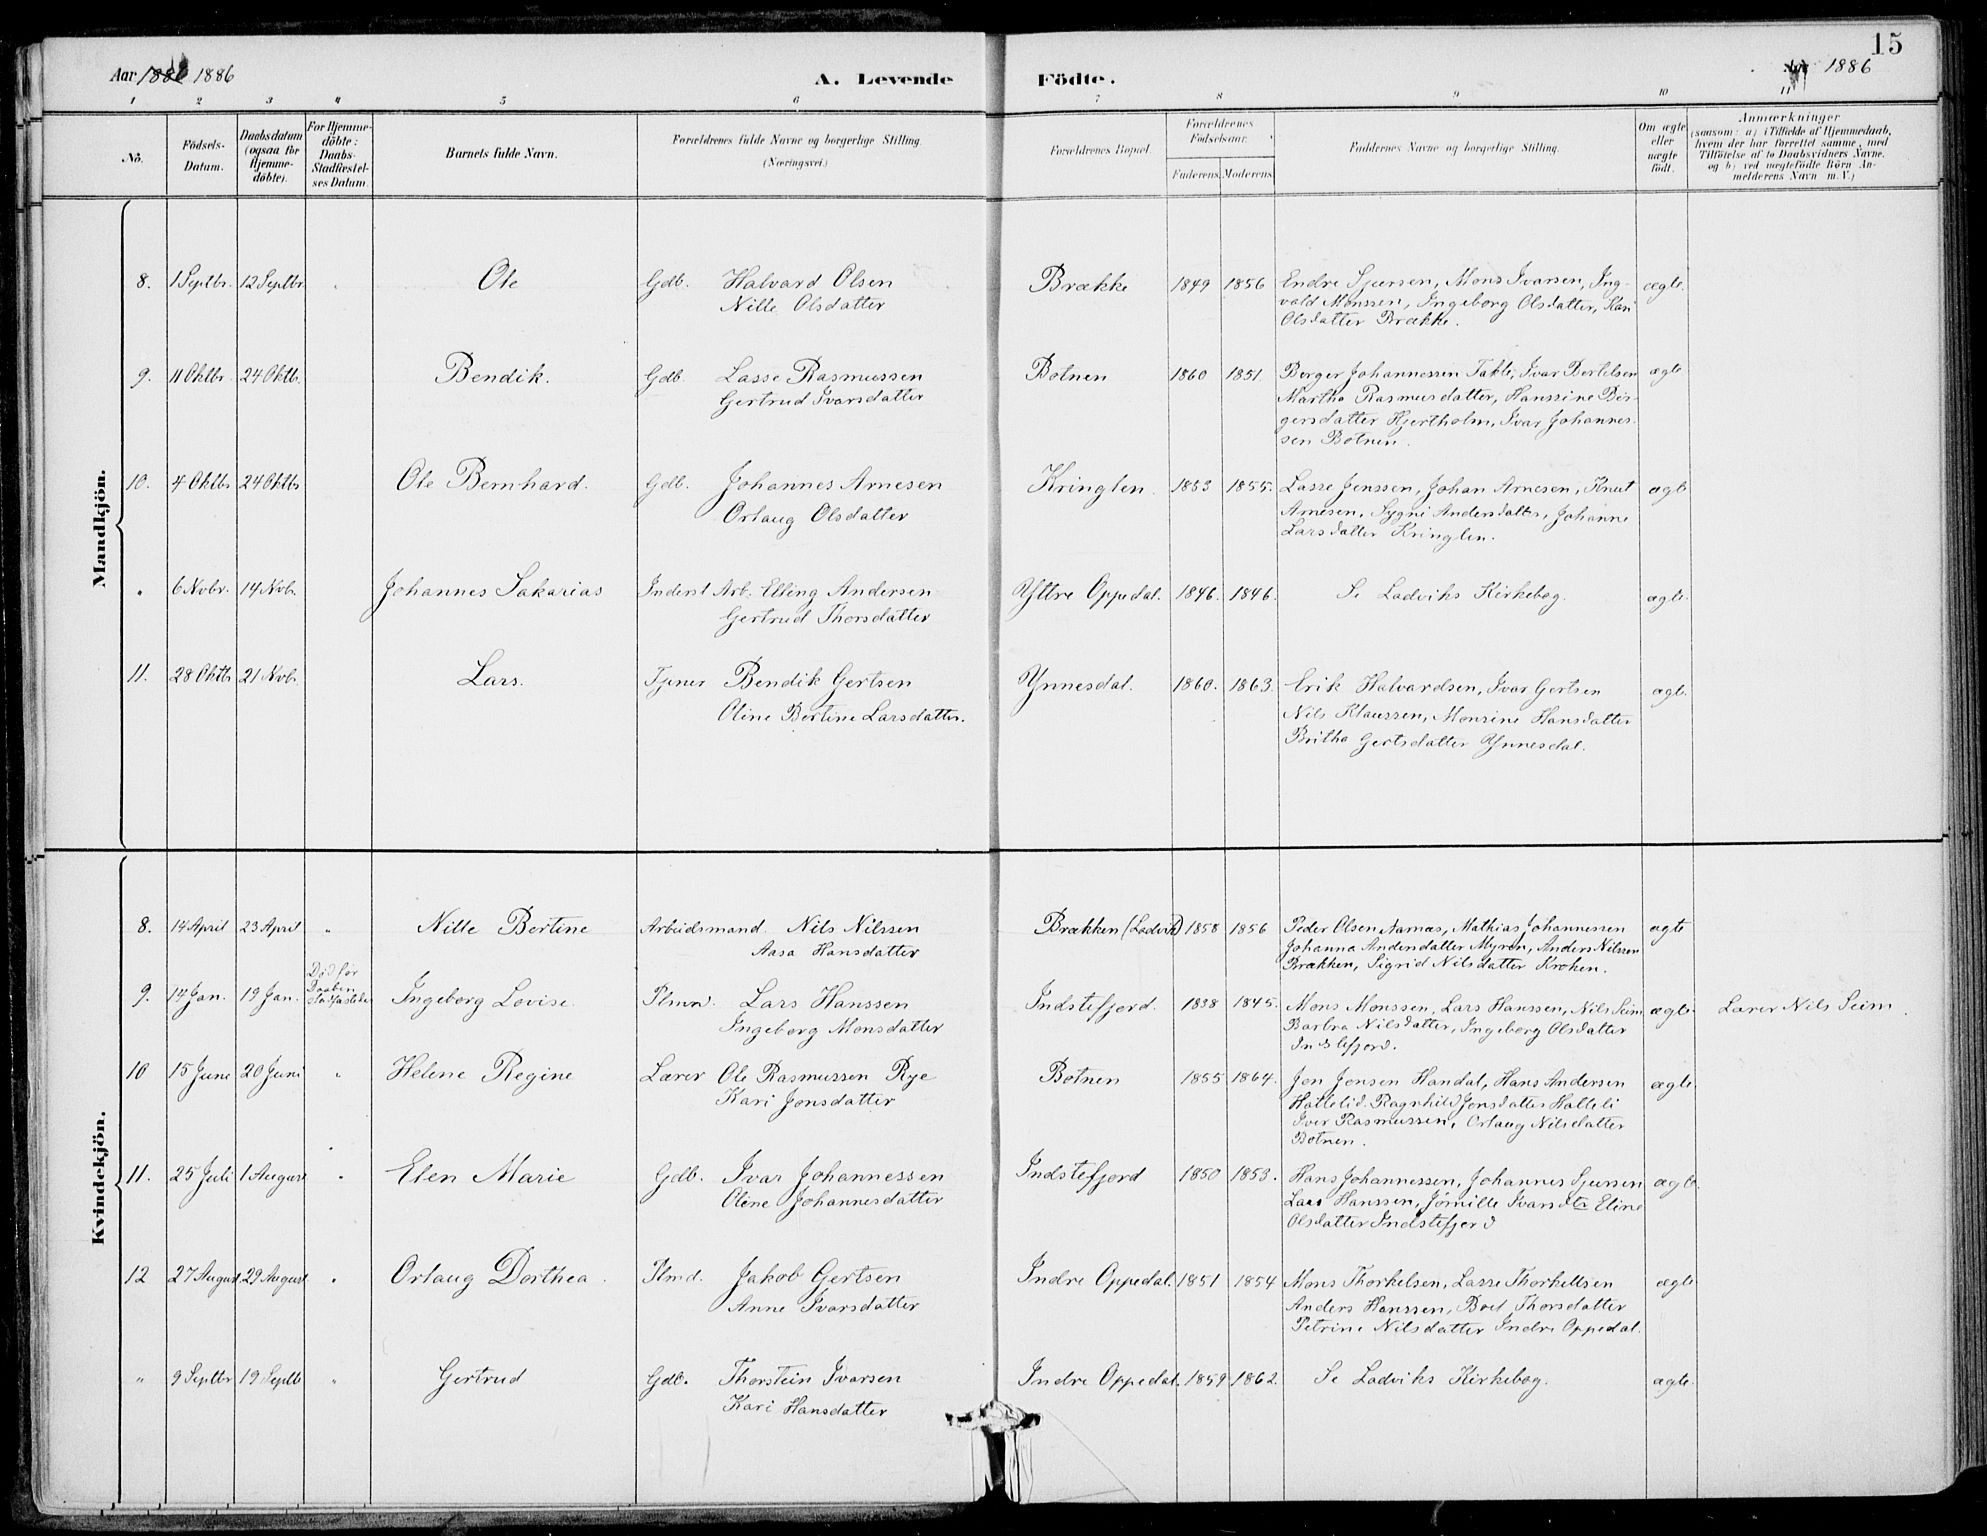 15
Aar 1886 1886
A. Levende Födte.
Aar 1886
1 2 3 4 5 6 7 8 9 10 11
No.
Födsels-Datum.
Daabsdatum (ogsaa for Hjemme-döbte).
For Hjemme-döbte: Daabs-Stadfæstel-ses Datum.
Barnets fulde Navn.
Forældrenes fulde Navne og borgerlige Stilling. (Næringsvei.)
Forældrenes Bopæl.
Forældrenes Födselsaar.
Faderens. Moderens.
Faddernes Navne og borgerlige Stilling.
Om ægte eller uægte födt.
Anmærkninger
(saasom: a) i Tilfælde af Hjemmedaab,
hvem der har forrettet samme, med
Tilföielse af to Daabsvidners Navne,
og b) ved uægtefödte Börn An-
melderens Navn m. V.)
Mandkjön.
8. 1 Septbr. 12 Septbr. Ole Gdb. Halvard Olsen Brække 1849 1856 Endre Sjursen, Mons Ivarsen, Ing- ægte.
Nille Olsdatter vald Monssen, Ingeborg Olsdatter, Kari
Olsdatter Brække.
9. 11 Oktbr. 24 Oktb. Bendik. Gdb. Lasse Rasmussen Botnen 1860 1851. Berger Johannessen Takle, Ivar Bertelsen ægte
Gertrud Ivarsdatter Martha Rasmusdatter, Hansine Bir-
gersdatter Hjertholm, Ivar Johannes-
sen Botnen.
10. 4 Oktbr 24 Oktbr Ole Bernhard. Gdb. Johannes Arnesen Kringlen. 1853 1855. Lasse Jenssen, Johan Arnesen, Knut ægte
Orlaug Olsdatter Arnesen, Sygni Andersdatter, Johanne
Larsdatter Kringlen.
" 6 Novbr. 14 Novb. Johannes Sakarias Inderst Arb. Elling Andersen Yttre Oppedal. 1846. 1846. Se Ladviks Kirkebog. ægte.
Gertrud Thorsdatter
11. 28 Oktb 21 Novb. Lars. Tjener Bendik Gertsen Ynnesdal. 1860. 1863. Erik Halvardsen, Ivar Gertsen ægte.
Oline Bertine Larsdatter. Nils Klaussen, Monsine Hansdatter
Britha Gertsdatter Ynnesdal.
Kvindekjön.
8. 14 April 23 April " Nille Bertine Arbeidsmand Nils Nilssen Brækken (Ladvik) 1858 1856 Peder Olsen Aamæs, Mathias Johannessen ægte
Aasa Hansdatter Johanna Andersdatter Myren, Anders Nilssen
Brækken, Sigrid Nilsdatter Kroken.
9. 14 Jan. 19 Jan. Död för Daaben Ingeborg Lovise. Plmd. Lars Hanssen Indstefjord. 1838 1845. Mons Monssen, Lars Hanssen, Nils Seim ægte. Lærer Nils Seim.
Ingeborg Monsdatter Barbra Nilsdatter, Ingeborg Olsdatter
Indstefjord.
10 15 June 20 Juni " Helene Regine Lærer Ole Rasmussen Rye Botnen 1855 1864. Jon Jonsen Handal, Hans Andersen ægte.
Kari Jonsdatter Hallelid. Ragnhild Jonsdatter Halleli
Iver Rasmussen, Orlaug Nilsdatter
Botnen.
11. 25 Juli 1 August " Elen Marie Gdb. Ivar Johannessen Indstefjord 1850 1853. Hans Johannessen, Johannes Sjursen ægte.
Oline Johannesdatter Lars Hanssen, Jørnille Ivarsdtr Eline
Olsdatter Indstefjord
12 27 August 29 August " Orlaug Dorthea. Plmd. Jakob Gertsen Indre Oppedal. 1851 1854 Mons Thorkelsen, Lasse Thorkellsen ægte
Anne Ivarsdatter Anders Hanssen, Boel Thorsdatter
Petrine Nilsdatter Indre Oppedal.
" 9 Septbr 19 Septb " Gertrud Gdb. Thorstein Ivarsen Indre Oppedal. 1859 1862. Se Ladviks Kirkebog. ægte.
Kari Hansdatter